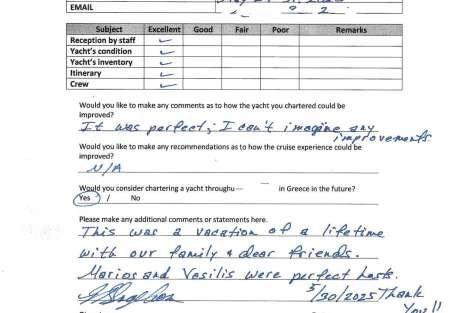 EMAIL
Subject Excellent Good Fair Poor Remarks
Reception by staff ✓
Yacht's condition ✓
Yacht's inventory ✓
Itinerary ✓
Crew ✓
Would you like to make any comments as to how the yacht you chartered could be
improved?
It was perfect; I can't imagine any
improvements.
Would you like to make any recommendations as to how the cruise experience could be
improved?
N/A
Would you consider chartering a yacht through in Greece in the future?
Yes / No
Please make any additional comments or statements here.
This was a vacation of a lifetime
with our family & dear friends.
Marios and Vasilis were perfect hosts.
5/30/2025 Thank
You!!